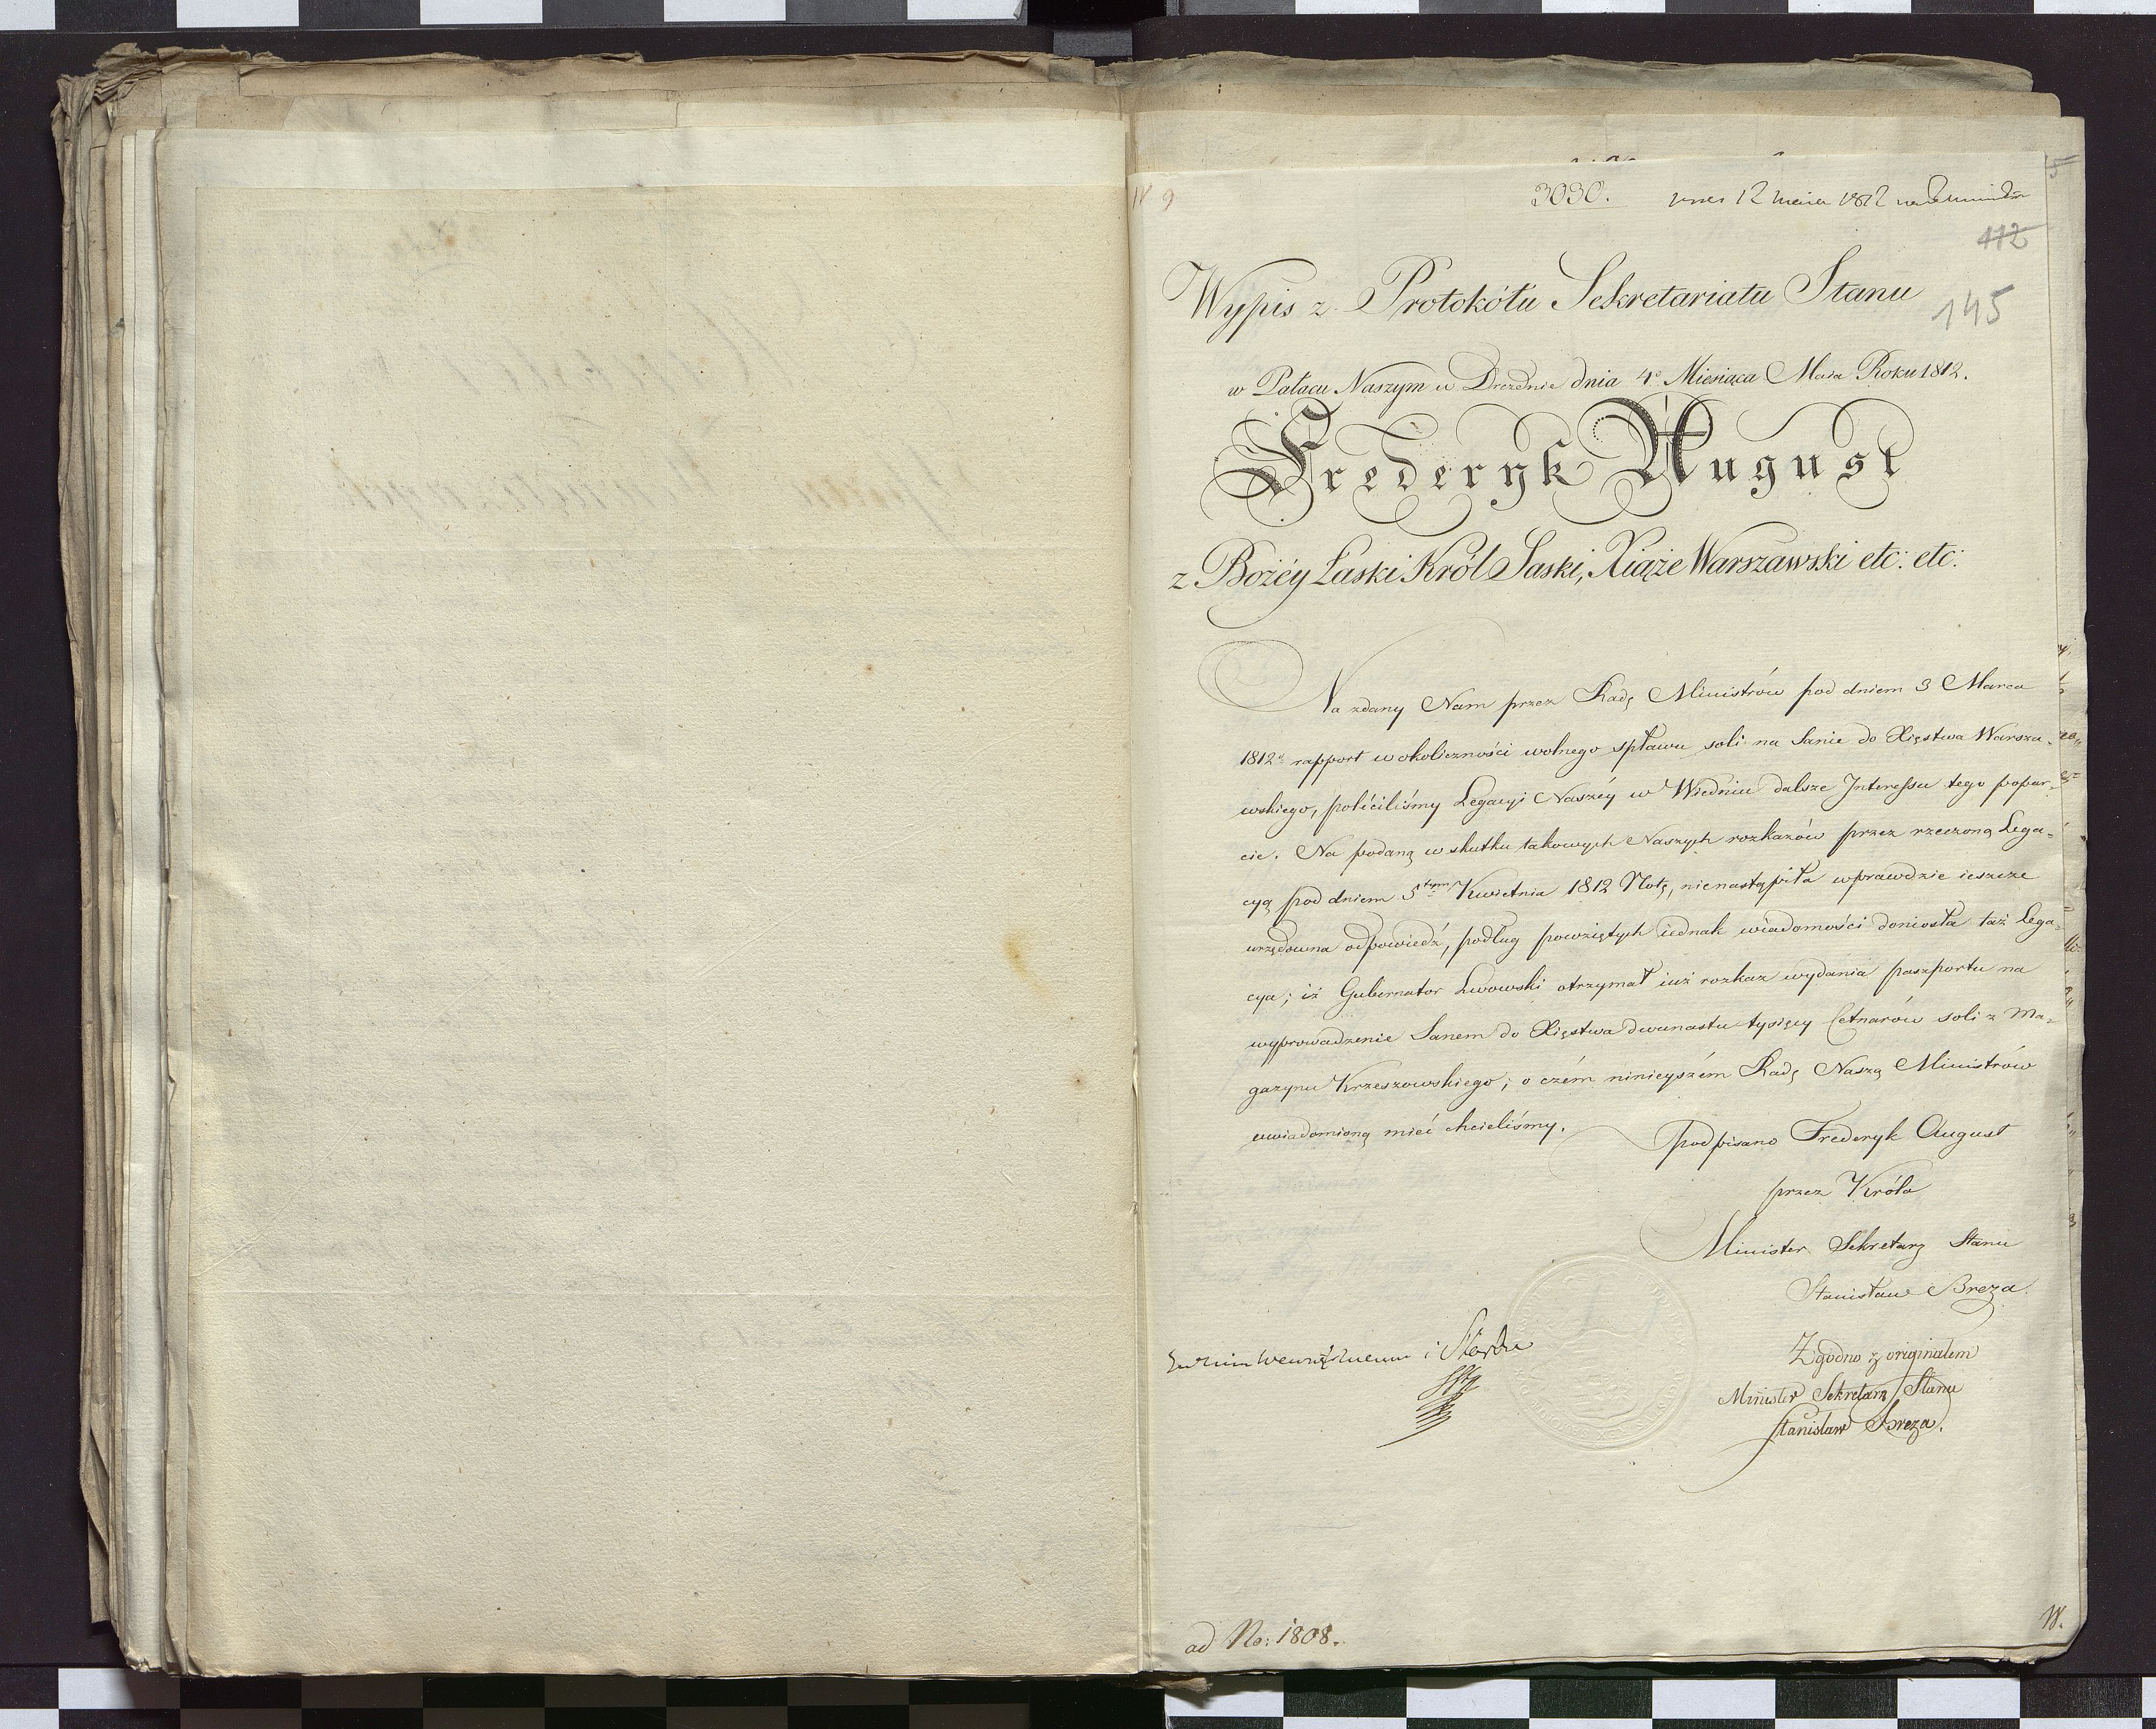 3030.
12 1812
112
145
Wypis z Protokółu Sekretariatu Stanu
w Pałacu Naszym w Dreźnie dnia 4º Miesiąca Maia Roku 1812.
Frederyk August
z Bożéy Łaski Król Saski, Xiąże Warszawski etc: etc:
Na zdany Nam przez Radę Ministrów pod dniem 3 Marca
1812º rapport w okoliczności wolnego spławu soli na Sanie do Xięstwa Warsza-
wskiego, poléciliśmy Legacyi Naszéy w Wiedniu dalsze Interessu tego popar-
cie. Na podaną w skutku takowych Naszych rozkazów przez rzeczoną Lega=
cyą pod dniem 5tym Kwietnia 1812 Notę, nienastąpiła wprawdzie ieszcze
urzędowna odpowiedź, podług powziętych iednak wiadomości doniosła taż Lega=
cya; iż Gubernator Lwowski otrzymał iuż rozkaz wydania paszportu na
wyprowadzenie Sanem do Xięstwa dwunastu tysięcy Cetnarów soli z Ma=
gazynu Krzeszowskiego; o czém ninieyszém Radę Naszą Ministrów
uwiadomioną mieć chcieliśmy.
podpisano Frederyk August
przez Króla
Minister Sekretarz Stanu
Stanisław Breza.
i Skarbu
Zgodno z originałem
Minister Sekretarz Stanu
Stanisław Breza.
ad No: 1808.